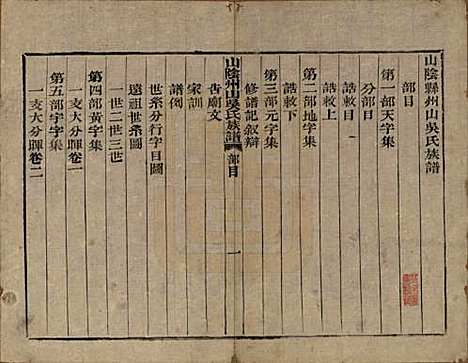 山陰縣州山吳氏族譜
部目
第一部天字集
分部目
誥敕目
誥敕上
第二部地字集
誥敕下
第三部元字集
修譜記敘辯
山陰州山吳氏族譜
部目
一
告廟文
家訓
譜例
世系分行字目圖
遠祖世系圖
一世二世三世
第四部黃字集
一支大分暉卷一
第五部宇字集
一支大分暉卷二